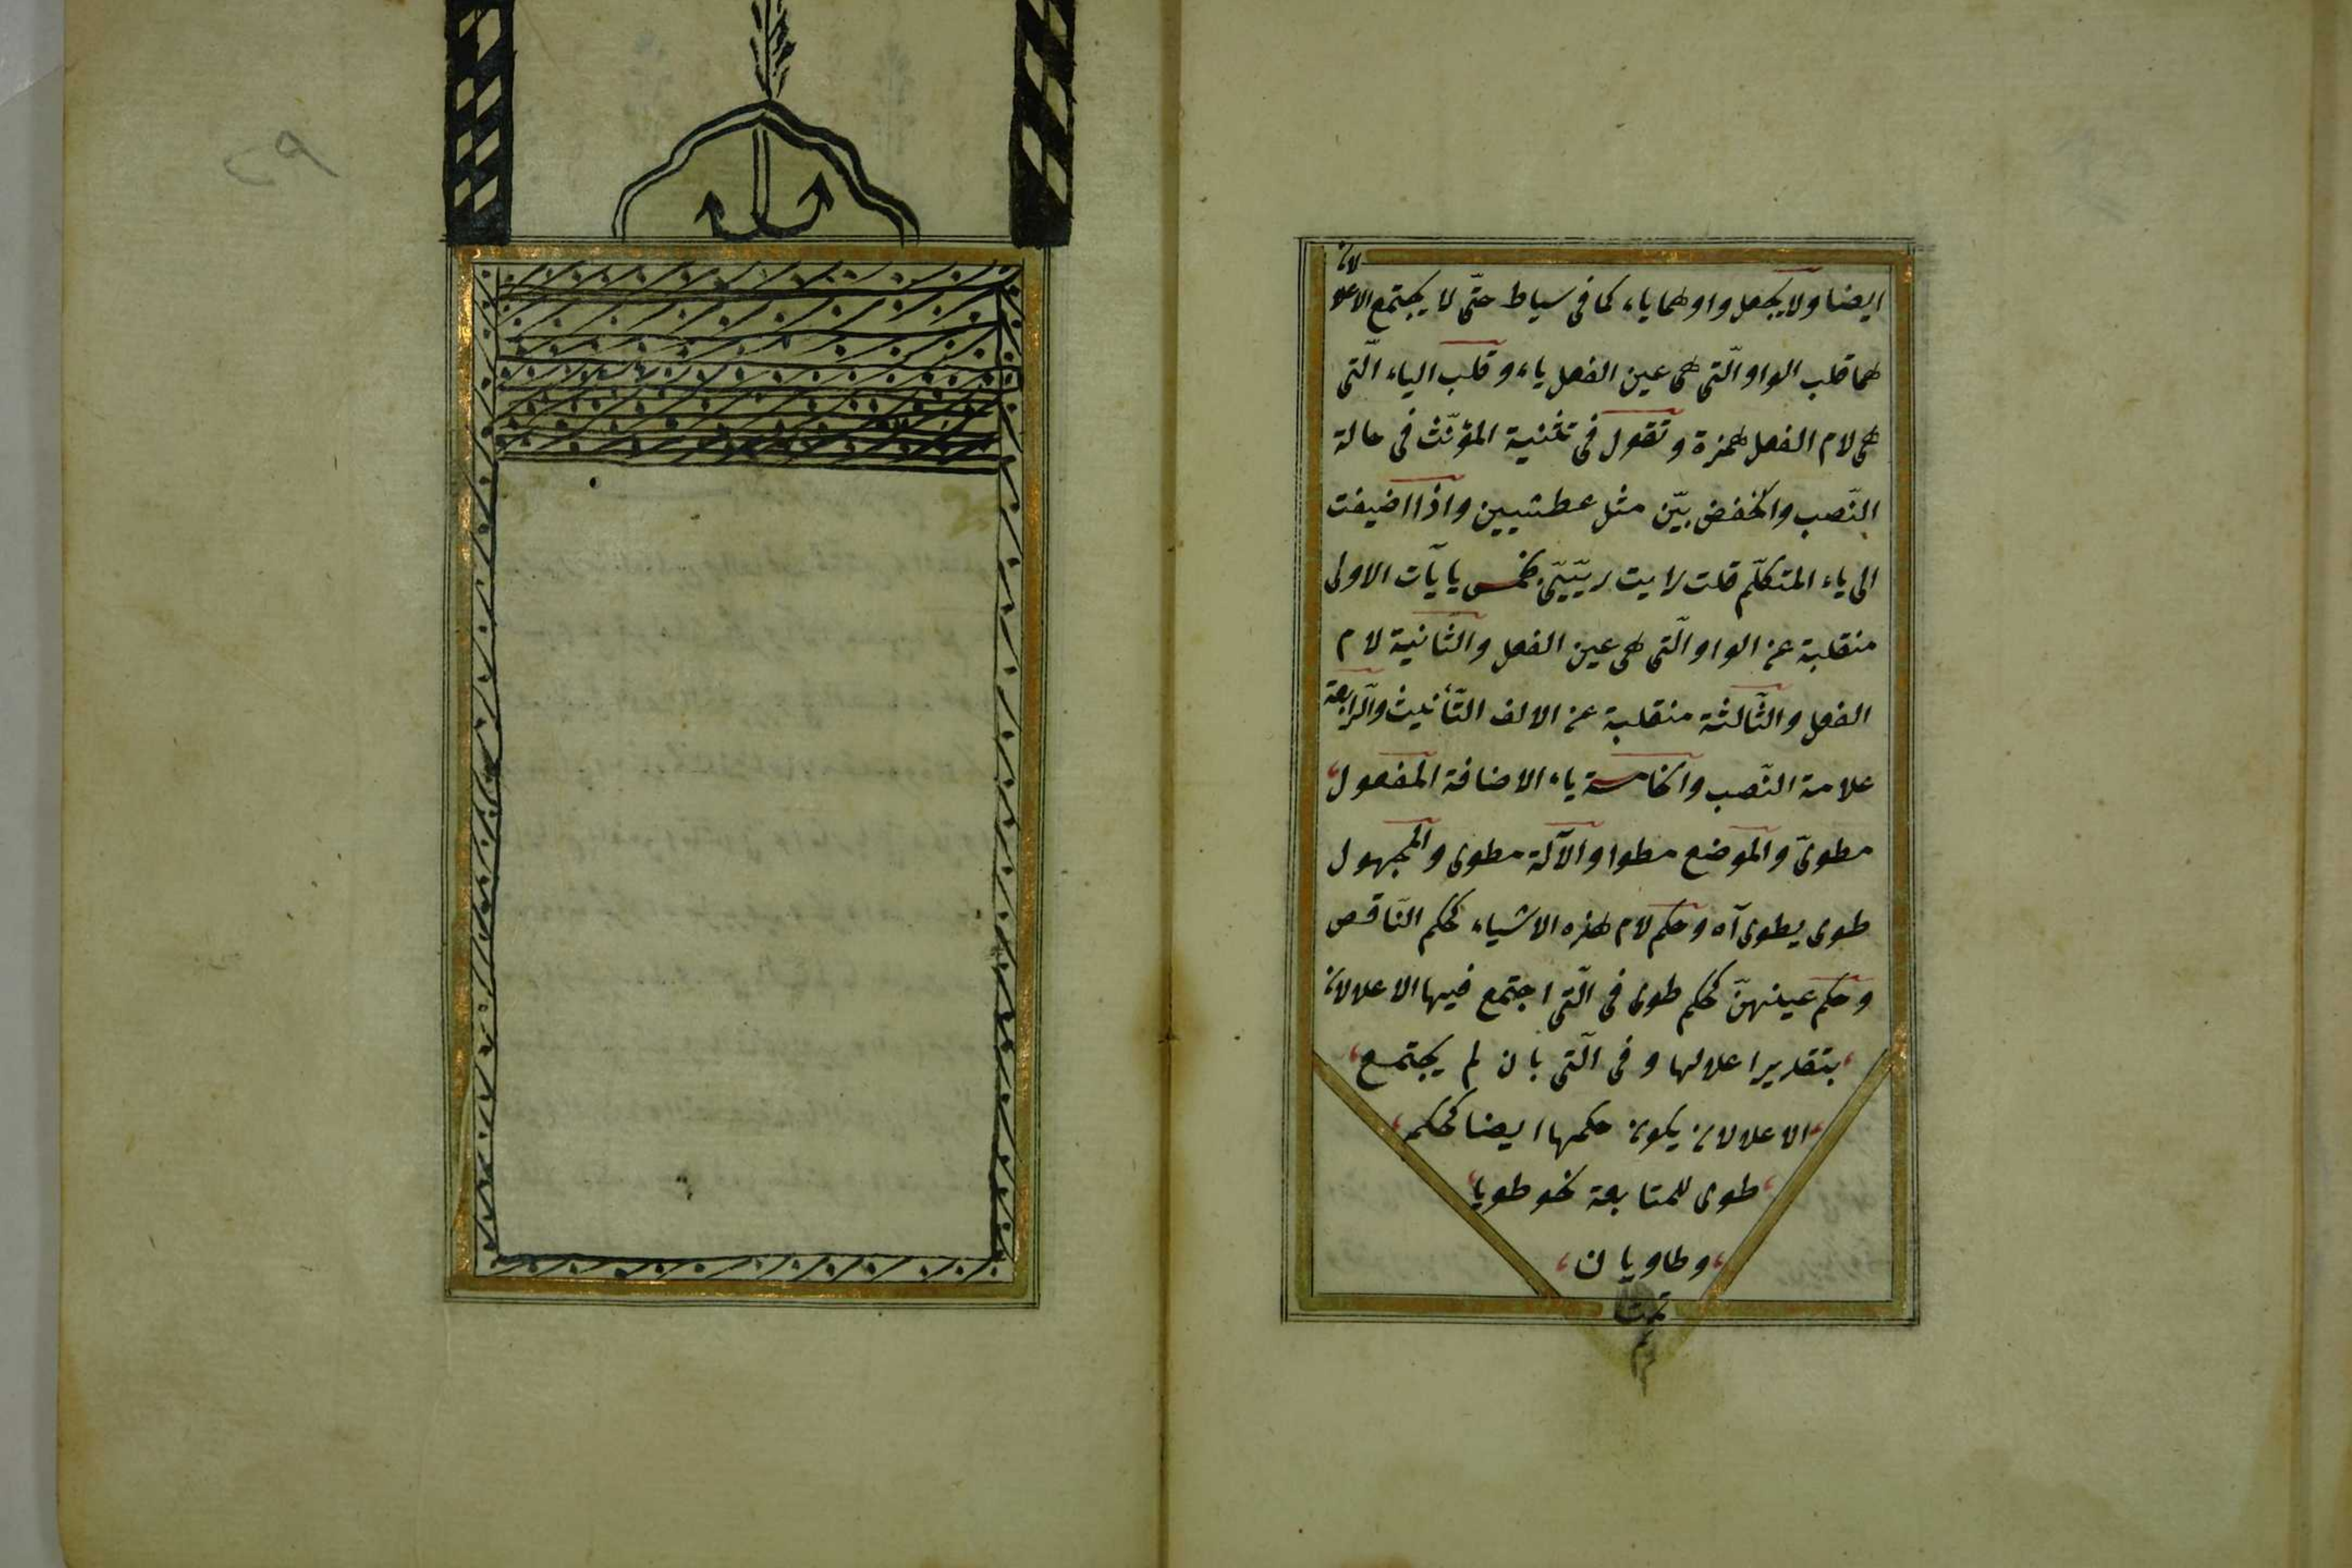 ايضا ولا يجعل واوهما ياء كما فى سياط حتّى لا يجتمع الاعلالان
هما قلب الواو الّتى هى عين الفعل ياء وقلب الياء الّتى
هى لام الفعل همزة وتقول فى تثنية المؤنّث فى حالة
النّصب والخفض ريّين مثل عطشيين واذا اضيفت
الى ياء المتكلّم قلت رايت ريّيىّ بخمس يايآت الاولى
منقلبة عن الواو الّتى هى عين الفعل والثّانية لام
الفعل والثّالثة منقلبة عن الالف التّأنيث والرّابعة
علامة النّصب والخامسة ياء الاضافة المفعول
مطوىّ والموضع مطوا والآلة مطوى والمجهول
طوى يطوى آه وحكم لام هذه الاشياء كحكم النّاقص
وحكم عينهنّ كحكم طوى فى الّتى اجتمع فيها الاعلالان
بتقدير اعلالها وفى الّتى بان لم يجتمع
الاعلالان يكون حكمها ايضا كحكم
طوى للمتابعة نحو طويا
وطاويان
تمت